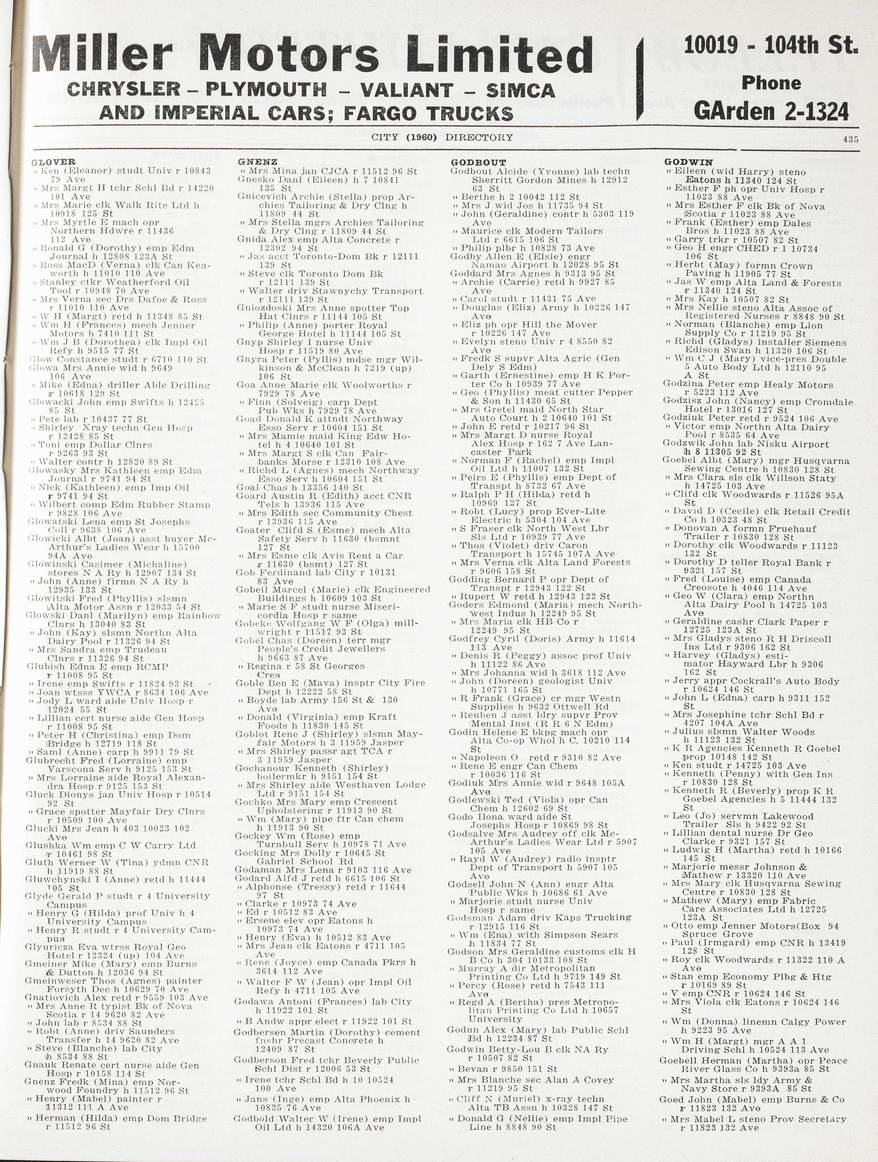 Miller Motors Limited
CHRYSLER – PLYMOUTH – VALIANT – SIMCA
AND IMPERIAL CARS; FARGO TRUCKS
10019 - 104th St.
Phone
GArden 2-1324
CITY (1960) DIRECTORY
435
GLOVER
" Ken (Eleanor) studt Univ r 10843
79 Ave
" Mrs Margt H tchr Schl Bd r 14220
101 Ave
" Mrs Marie clk Walk Rite Ltd h
10918 125 St
" Mrs Myrtle E mach opr
Northern Hdwre r 11436
112 Ave
" Ronald G (Dorothy) emp Edm
Journal h 12808 123A St
" Ross MacD (Verna) clk Can Ken-
worth h 11010 110 Ave
" Stanley ctkr Weatherford Oil
Tool r 10948 70 Ave
" Mrs Verna sec Drs Dafoe & Ross
r 11010 110 Ave
" W H (Margt) retd h 11348 85 St
" Wm H (Frances) mech Jenner
Motors h 7410 111 St
" Wm J B (Dorothea) clk Impl Oil
Refy h 9515 77 St
Glow Constance studt r 6710 110 St
Glowa Mrs Annie wid h 9649
106 Ave
" Mike (Edna) driller Able Drilling
r 10618 129 St
Glowacki John emp Swifts h 12425
85 St
" Pete lab r 10437 77 St
" Shirley Xray techn Gen Hosp
r 12428 85 St
" Toni emp Dollar Clnrs
r 9263 93 St
" Walter contr h 12820 89 St
Glowasky Mrs Kathleen emp Edm
Journal r 9741 94 St
" Nick (Kathleen) emp Imp Oil
r 9741 94 St
" Wilbert comp Edm Rubber Stamp
r 9828 106 Ave
Glowatski Lena emp St Josephs
Coll r 9638 106 Ave
Glowicki Albt (Joan) asst buyer Mc-
Arthur's Ladies Wear h 15700
94A Ave
Glowinski Casimer (Michaline)
stores N A Ry h 12907 134 St
" John (Anne) firmn N A Ry h
12935 133 St
Glowitski Fred (Phyllis) slsmn
Alta Motor Assn r 12033 54 St
Glowski Danl (Marilyn) emp Rainbow
Clnrs h 13040 83 St
" John (Kay) slsmn Northn Alta
Dairy Pool r 11326 94 St
" Mrs Sandra emp Trudeau
Clnrs r 11326 94 St
Glubish Edna E emp RCMP
r 11008 95 St
" Irene emp Swifts r 11824 93 St
" Joan wtsss YWCA r 8634 106 Ave
" Jody L ward aide Univ Hosp r
12024 55 St
" Lillian cert nurse aide Gen Hosp
r 11008 95 St
" Peter H (Christina) emp Dom
Bridge h 12719 118 St
" Saml (Anne) carp h 9911 79 St
Glubrecht Fred (Lorraine) emp
Varscona Serv h 9125 153 St
" Mrs Lorraine aide Royal Alexan-
dra Hosp r 9125 153 St
Gluck Dionys jan Univ Hosp r 10514
92 St
" Grace spotter Mayfair Dry Clnrs
r 10509 100 Ave
Glucki Mrs Jean h 403 10023 102
Ave
Glushka Wm emp C W Carry Ltd
r 10461 98 St
Gluth Werner W (Tina) ydmn CNR
h 11919 88 St
Gluwchynski I (Anne) retd h 11444
105 St
Glyde Gerald P studt r 4 University
Campus
" Henry G (Hilda) prof Univ h 4
University Campus
" Henry R studt r 4 University Cam-
pus
Glyuricza Eva wtrss Royal Geo
Hotel r 12324 (up) 104 Ave
Gmeiner Mike (Mary) emp Burns
& Dutton h 12036 94 St
Gmeinweser Thos (Agnes) painter
Forsyth Dec h 10629 70 Ave
Gnatiovich Alex retd r 9559 103 Ave
" Mrs Anne R typist Bk of Nova
Scotia r 14 9620 82 Ave
" John lab r 8534 88 St
" Robt (Anne) driv Saunders
Transfer h 14 9620 82 Ave
" Steve (Blanche) lab City
h 8534 88 St
Gnauk Renate cert nurse aide Gen
Hosp r 10158 114 St
Gnenz Fredk (Mina) emp Nor-
wood Foundry h 11512 96 St
" Henry (Mabel) painter r
11312 111 A Ave
" Herman (Hilda) emp Dom Bridge
r 11512 96 St
GNENZ
" Mrs Mina jan CJCA r 11512 96 St
Gnesko Danl (Eileen) h 7 10841
135 St
Gnicevich Archie (Stella) prop Ar-
chies Tailoring & Dry Clng h
11809 44 St
" Mrs Stella mgrs Archies Tailoring
& Dry Clng r 11809 44 St
Gnida Alex emp Alta Concrete r
12302 94 St
" Jas acct Toronto-Dom Bk r 12111
139 St
" Steve clk Toronto Dom Bk
r 12111 139 St
" Walter driv Stawnychy Transport
r 12111 139 St
Gniozdoski Mrs Anne spotter Top
Hat Clnrs r 11144 105 St
" Philip (Anne) porter Royal
George Hotel h 11144 105 St
Gnyp Shirley I nurse Univ
Hosp r 11519 80 Ave
Gnyra Peter (Pyllis) mdse mgr Wil-
kinson & McClean h 7219 (up)
106 St
Goa Anne Marie clk Woolworths r
7929 78 Ave
" Finn (Solveig) carp Dept
Pub Wks h 7929 78 Ave
Goad Donald K attndt Northway
Esso Serv r 10604 151 St
" Mrs Mamie maid King Edw Ho-
tel h 4 10640 101 St
" Mrs Margt S clk Can Fair-
banks Morse r 12310 108 Ave
" Richd L (Agnes) mech Northway
Esso Serv h 10604 151 St
Goal Chas h 13356 140 St
Goard Austin R (Edith) acct CNR
Tels h 13936 115 Ave
" Mrs Edith sec Community Chest
r 13936 115 Ave
Goater Clifd S (Esme) mech Alta
Safety Serv h 11630 (bsmnt
127 St
" Mrs Esme clk Avis Rent a Car
r 11630 (bsmt) 127 St
Gob Ferdinand lab City r 10131
83 Ave
Gobeil Marcel (Marie) clk Engineered
Buildings h 10609 103 St
" Marie S F studt nurse Miseri-
cordia Hosp r same
Gobeke Wolfgang W F (Olga) mill-
wright r 11517 93 St
Gobel Chas (Doreen) terr mgr
People's Credit Jewellers
h 9663 87 Ave
" Regina r 58 St Georges
Cres
Goble Ben E (Mava) insptr City Fire
Dept h 12222 58 St
" Boyde lab Army 156 St & 130
Ave
" Donald (Virginia) emp Kraft
Foods h 11830 145 St
Goblot Rene J (Shirley) slsmn May-
fair Motors h 3 11959 Jasper
" Mrs Shirley pasnr agt TCA r
3 11959 Jasper
Gochanour Kenneth (Shirley)
boilermkr h 9151 154 St
" Mrs Shirley aide Westhaven Lodge
Ltd r 9151 154 St
Gochko Mrs Mary emp Crescent
Upholstering r 11913 90 St
" Wm (Mary) pipe ftr Can chem
h 11913 90 St
Gockey Wm (Rose) emp
Turnbull Serv h 10978 71 Ave
Gocking Mrs Dolly r 10645 St
Gabriel School Rd
Godaman Mrs Lena r 9103 116 Ave
Godard Alfd J retd h 6615 106 St
" Alphonse (Tressy) retd r 11644
97 St
" Clarke r 10973 74 Ave
" Ed r 10512 83 Ave
" Ersene elev opr Eatons h
10973 74 Ave
" Henry (Eva) h 10512 83 Ave
" Mrs Jean clk Eatons r 4711 105
Ave
" Rene (Joyce) emp Canada Pkrs h
3614 112 Ave
" Walter F W (Jean) opr Impl Oil
Refy h 4711 105 Ave
Godawa Antoni (Frances) lab City
h 11922 101 St
" B Andw appr elect r 11922 101 St
Godbersen Martin (Dorothy) cement
fnshr Precast Concrete h
12409 87 St
Godberson Fred tchr Beverly Public
Schl Dist r 12006 53 St
" Irene tchr Schl Bd h 10 10524
100 Ave
" Jans (Inge) emp Alta Phoenix h
10835 76 Ave
Godbold Walter W (Irene) emp Impl
Oil Ltd h 14320 106A Ave
GODBOUT
Godbout Alcide (Yvonne) lab techn
Sherritt Gordon Mines h 12912
63 St
" Berthe h 2 10042 112 St
" Mrs J wid Jos h 11735 94 St
" John (Geraldine) contr h 5303 119
Ave
" Maurice clk Modern Tailors
Ltd r 6615 106 St
" Philip plbr h 10828 73 Ave
Godby Allen E (Elsie) engr
Namao Airport h 12028 95 St
Goddard Mrs Agnes h 9313 95 St
" Archie (Carrie) retd h 9927 85
Ave
" Carol studt r 11431 75 Ave
" Douglas (Eliz) Army h 10226 147
Ave
" Eliz ph opr Hill the Mover
r 10226 147 Ave
" Evelyn steno Univ r 4 8550 82
Ave
" Fredk S supvr Alta Agric (Gen
Dely S Edm)
" Garth (Ernestine) emp H K Por-
ter Co h 10939 77 Ave
" Geo (Phyllis) meat cutter Pepper
& Son h 11430 65 St
" Mrs Gretel maid North Star
Auto Court h 2 10640 101 St
" John E retd r 10217 96 St
" Mrs Margt D nurse Royal
Alex Hosp r 162 7 Ave Lan-
caster Park
" Norman F (Rachel) emp Impl
Oil Ltd h 11007 132 St
" Peirs E (Phyllis) emp Dept of
Transpt h 8732 67 Ave
" Ralph P H (Hilda) retd h
10969 127 St
" Robt (Lucy) prop Ever-Lite
Electric h 5304 104 Ave
" S Fraser clk North West Lbr
Sls Ltd r 10939 77 Ave
" Thos (Violet) driv Caron
Transport h 15745 107A Ave
" Mrs Verna clk Alta Land Forests
r 9606 158 St
Godding Bernard P opr Dept of
Transpt r 12943 122 St
" Rupert W retd h 12943 122 St
Goders Edmond (Maria) mech North-
west Indus h 12249 95 St
" Mrs Maria clk HB Co r
12249 95 St
Godfrey Cyril (Doris) Army h 11614
113 Ave
" Denis R (Peggy) assoc prof Univ
h 11122 86 Ave
" Mrs Johanna wid h 3618 112 Ave
" John (Doreen) geologist Univ
h 10771 165 St
" R Frank (Grace) cr mgr Westn
Supplies h 9632 Ottwell Rd
" Reuben J asst ldry supvr Prov
Mental Inst (R R 6 N Edm)
Godin Helene E bkpg mach opr
Alta Co-op Whol h C, 10210 114
St
" Napoleon O retd r 9310 82 Ave
" Rene E engr Can Chem
r 10036 116 St
Godiuk Mrs Annie wid r 9648 105A
Ave
Godlewski Ted (Viola) opr Can
Chem h 12602 69 St
Godo Ilona ward aide St
Josephs Hosp r 10869 98 St
Godsalve Mrs Audrey off clk Mc-
Arthur's Ladies Wear Ltd r 5907
105 Ave
" Rayd W (Audrey) radio insptr
Dept of Transport h 5907 105
Ave
Godsell John N (Ann) engr Alta
Public Wks h 10686 61 Ave
" Marjorie studt nurse Univ
Hosp r same
Godsman Adam driv Kaps Trucking
r 12915 116 St
" Wm (Ena) with Simpson Sears
h 11834 77 St
Godson Mrs Geraldine customs clk H
B Co h 304 10133 108 St
" Murray A dir Metropolitan
Printing Co Ltd h 9719 149 St
" Percy (Rose) retd h 7543 111
Ave
" Regd A (Bertha) pres Metropo-
litan Printing Co Ltd h 10657
University
Godun Alex (Mary) lab Public Schl
Bd h 12234 87 St
Godwin Betty-Lou B clk NA Ry
r 10507 82 St
" Bevan r 9850 151 St
" Mrs Blanche sec Alan A Covey
r 11219 95 St
" Cliff N (Muriel) x-ray techn
Alta TB Assn h 10328 147 St
" Donald G (Nellie) emp Impl Pipe
Line h 8848 90 St
GODWIN
" Eileen (wid Harry) steno
Eatons h 11340 124 St
" Esther F ph opr Univ Hosp r
11023 88 Ave
" Mrs Esther F clk Bk of Nova
Scotia r 11023 88 Ave
" Frank (Esther) emp Dales
Bros h 11023 88 Ave
" Garry trkr r 10507 82 St
" Geo H engr CHED r 1 10734
106 St
" Herbt (May) formn Crown
Paving h 11905 77 St
" Jas W emp Alta Land & Forests
r 11340 124 St
" Mrs Kay h 10507 82 St
" Mrs Nellie steno Alta Assoc of
Registered Nurses r 8848 90 St
" Norman (Blanche) emp Lion
Supply Co r 11219 95 St
" Richd (Gladys) installer Siemens
Edison Swan h 11320 106 St
" Wm C J (Mary) vice-pres Double
5 Auto Body Ltd h 12110 95
A St
Godzina Peter emp Healy Motors
r 5223 112 Ave
Godzisz John (Nancy) emp Cromdale
Hotel r 13016 127 St
Godziuk Peter retd r 9524 106 Ave
" Victor emp Northn Alta Dairy
Pool r 8535 64 Ave
Godzwik John lab Nisku Airport
h 8 11305 92 St
Goebel Albt (Mary) mgr Husqvarna
Sewing Centre h 10830 128 St
" Mrs Clara sls clk Willson Staty
h 14725 103 Ave
" Clifd clk Woodwards r 11526 95A
St
" David D (Cecile) clk Retail Credit
Co h 10323 48 St
" Donovan A formn Fruehauf
Trailer r 10830 128 St
" Dorothy clk Woodwards r 11123
132 St
" Dorothy D teller Royal Bank r
9321 157 St
" Fred (Louise) emp Canada
Creosote h 4046 114 Ave
" Geo W (Clara) emp Northn
Alta Dairy Pool h 14725 103
Ave
" Geraldine cashr Clark Paper r
12725 123A St
" Mrs Gladys steno R H Driscoll
Ins Ltd r 9306 162 St
" Harvey (Gladys) esti-
mator Hayward Lbr h 9306
162 St
" Jerry appr Cockrall's Auto Body
r 10624 146 St
" John L (Edna) carp h 9311 152
St
" Mrs Josephine tchr Schl Bd r
4207 104A Ave
" Julius slsmn Walter Woods
h 11123 132 St
" K R Agencies Kenneth R Goebel
prop 10148 142 St
" Ken studt r 14725 103 Ave
" Kenneth (Penny) with Gen Ins
r 10830 128 St
" Kenneth R (Beverly) prop K R
Goebel Agencies h 5 11444 132
St
" Leo (Jo) servmn Lakewood
Trailer Sls h 9422 92 St
" Lillian dental nurse Dr Geo
Clarke r 9321 157 St
" Ludwig H (Martha) retd h 10166
145 St
" Marjorie messr Johnson &
Mathew r 13320 110 Ave
" Mrs Mary clk Husqvarna Sewing
Centre r 10830 128 St
" Mathew (Mary) emp Fabric
Care Associates Ltd h 12725
123A St
" Otto emp Jenner Motors(Box 94
Spruce Grove
" Paul (Irmgard) emp CNR h 13419
128 St
" Roy clk Woodwards r 11322 110 A
Ave
" Stan emp Economy Plbg & Htg
r 10169 89 St
" V emp CNR r 10624 146 St
" Mrs Viola clk Eatons r 10624 146
St
" Wm (Donna) linemn Calgy Power
h 9223 95 Ave
" Wm H (Margt) mgr A A 1
Driving Schl h 10524 113 Ave
Goebell Herman (Martha) opr Peace
River Glass Co h 9393a 85 St
" Mrs Martha sls ldy Army &
Navy Store r 9393A 85 St
Goed John (Mabel) emp Burns & Co
r 11823 132 Ave
" Mrs Mabel L steno Prov Secretary
r 11823 132 Ave